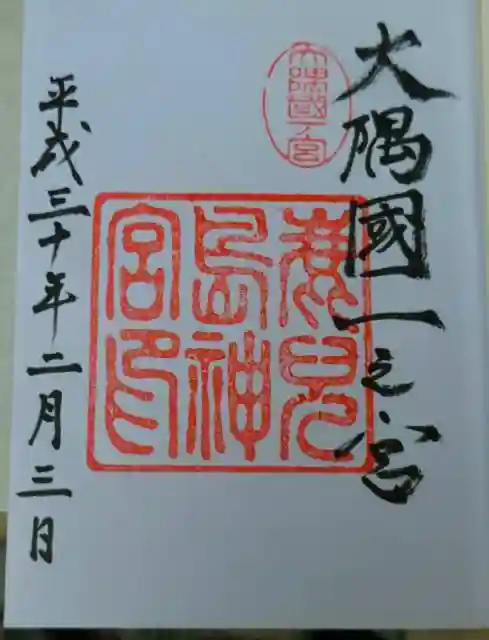 大隅國一之宮
大隅國一ノ宮
鹿兒
島神
宮印
平成三十年二月三日